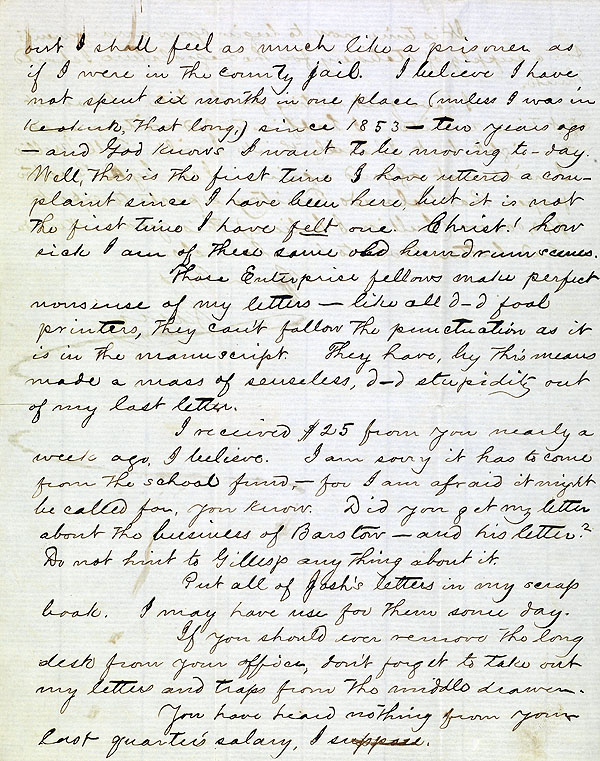 out I shall feel as much like a prisoner as
if I were in the county jail. I believe I have
not spent six months in one place (unless I was in
Keokuk, that long,) since 1853 — ten years ago
— and God knows I want to be moving to-day.
Well, this is the first time I have uttered a com-
plaint since I have been here, but it is not
the first time I have felt one. Christ! how
sick I am of these same old humdrum scenes.
Those Enterprise fellows make perfect
nonsense of my letters — like all d—d fool
printers, they can't follow the punctuation as it
is in the manuscript. They have, by this means
made a mass of senseless, d—d stupidity out
of my last letter.
I received $25 from you nearly a
week ago, I believe. I am sorry it has to come
from the school fund, — for I am afraid it might
be called for, you know. Did you get my letter
about the business of Barstow — and his letter?
Do not hint to Gillesp anything about it.
Put all of Josh's letters in my scrap
book. I may have use for them some day.
If you should ever remove the long
desk from your office, don't forget to take out
my letters and traps from the middle drawer.
You have heard nothing from your
last quarter's salary, I suppose.